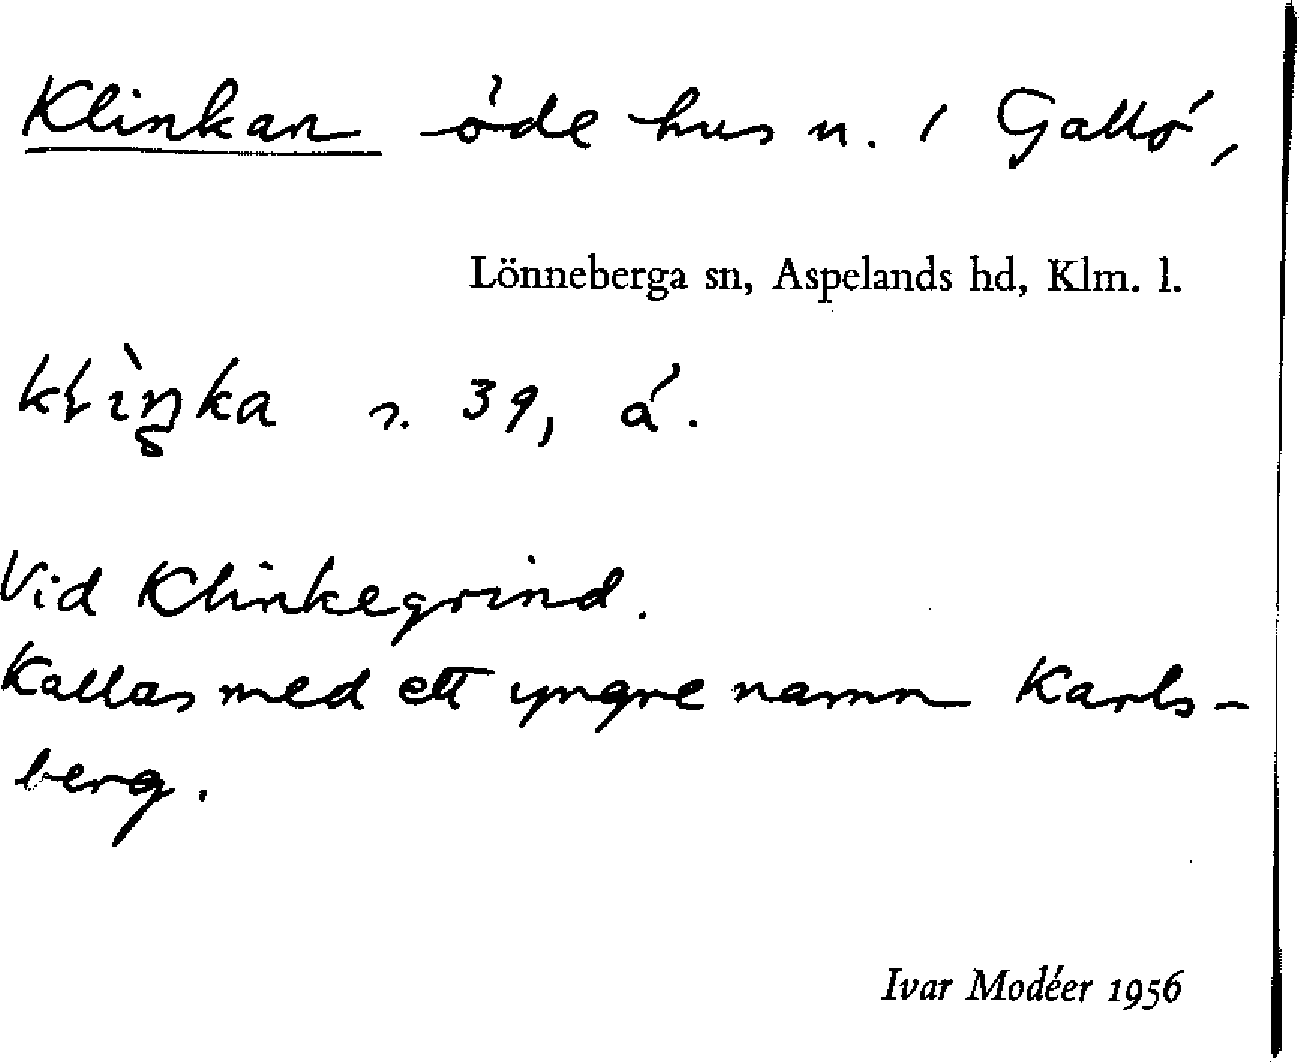 Klinkan öde hus n. i Gallö,
Lönneberga sn, Aspelands hd, Klm. l.
s. 39, á.
Vid Klinkegrind.
Kallas med ett yngre namn Karls-
berg.
Ivar Modéer 1956